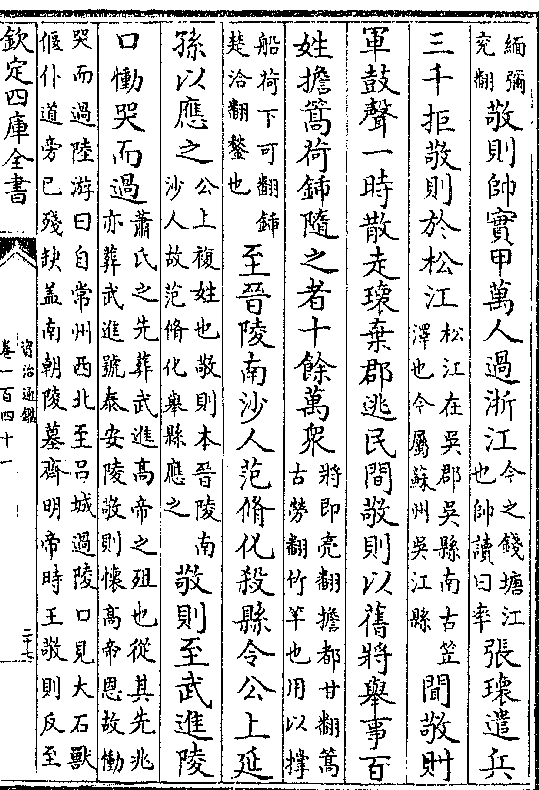 緬彌
兖翻
敬則帥實甲萬人過浙江
今之錢塘江
也帥讀曰率
張瓌遣兵
三千拒敬則於松江
松江在吳郡吳縣南古笠
澤也今屬蘇州吳江縣
聞敬則
軍鼓聲一時散走瓌棄郡逃民間敬則以舊將舉事百
姓擔篙荷鍤隨之者十餘萬衆
將即亮翻擔都甘翻篙
古勞翻竹竿也用以撑
船荷下可翻鍤
楚洽翻鍫也
至晉陵南沙人范脩化殺縣令公上延
孫以應之
公上複姓也敬則本晉陵南
沙人故范脩化舉縣應之
敬則至武進陵
口慟哭而過
蕭氏之先葬武進髙帝之殂也從其先兆
亦葬武進號泰安陵敬則懷髙帝恩故慟
哭而過陸游曰自常州西北至呂城過陵口見大石獸
偃仆道旁已殘缺盖南朝陵墓齊明帝時王敬則反至
欽定四庫全書
資治通鑑
卷一百四十一
二十六